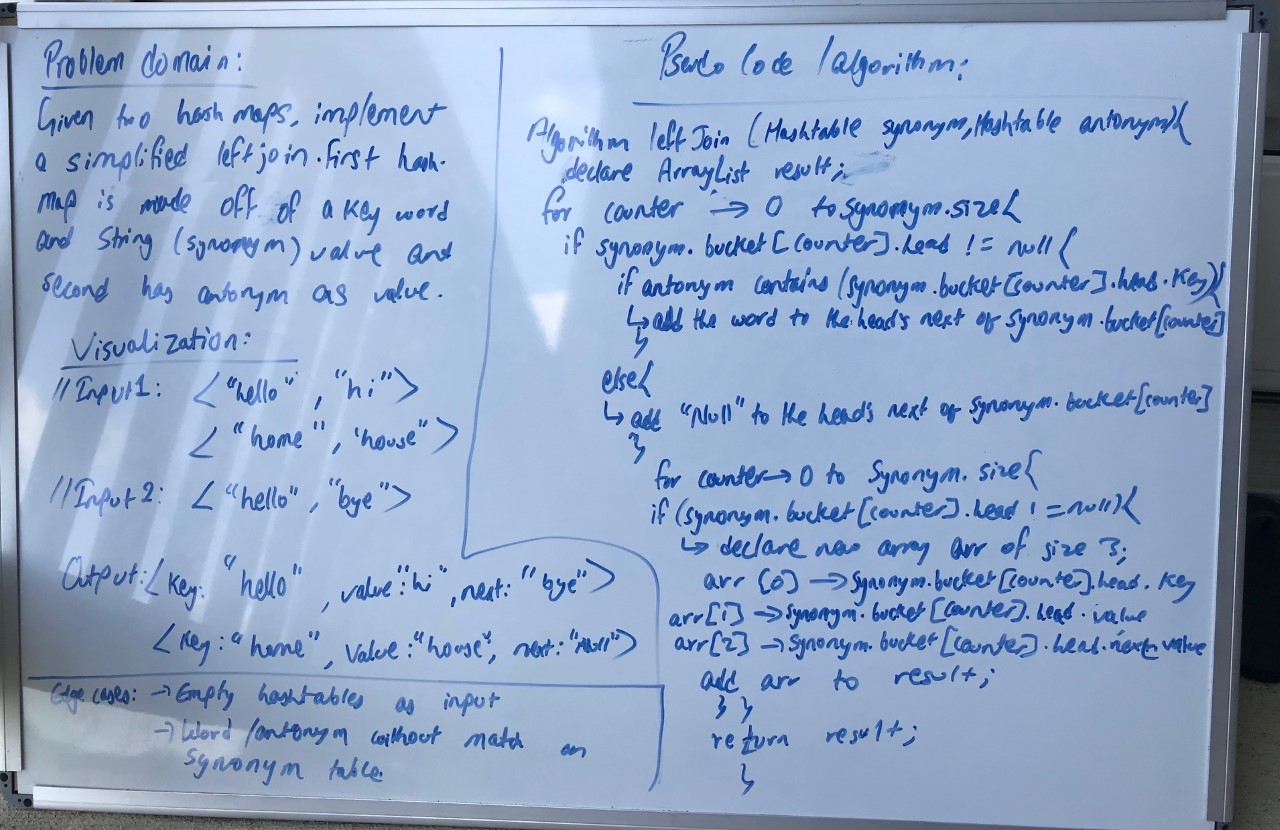 Problem domain:
Given two hash maps, implement
a simplified left join. First hash-
map is made off of a key word
and String (synonym) value and
second has antonym as value.
Visualization:
//Input1: <"hello", "hi">
<"home", 'house">
//Input2: <"hello", "bye">
Output: <key: "hello", value: "hi", next: "bye">
<key: "home", value: "house", next: "Null">
Edge cases: → Empty hashtables as input
→ Word/antonym without match on
synonym table
Pseudo Code / algorithm:
Algorithm left Join (Hashtable synonym, Hashtable antonym){
declare ArrayList result;
for counter → 0 to synonym.size{
if synonym.bucket[counter].head != null{
if antonym contains (synonym.bucket[counter].head.key){
↳ add the word to the head's next of synonym.bucket[counter]
}
else{
↳ add "Null" to the head's next of synonym.bucket[counter]
}
for counter → 0 to Synonym.size{
if (synonym.bucket[counter].head != null){
↳ declare new array arr of size 3;
arr [0] → synonym.bucket[counter].head.key
arr[1] → synonym.bucket[counter].head.value
arr[2] → synonym.bucket[counter].head.next.value
add arr to result;
} }
return result;
}